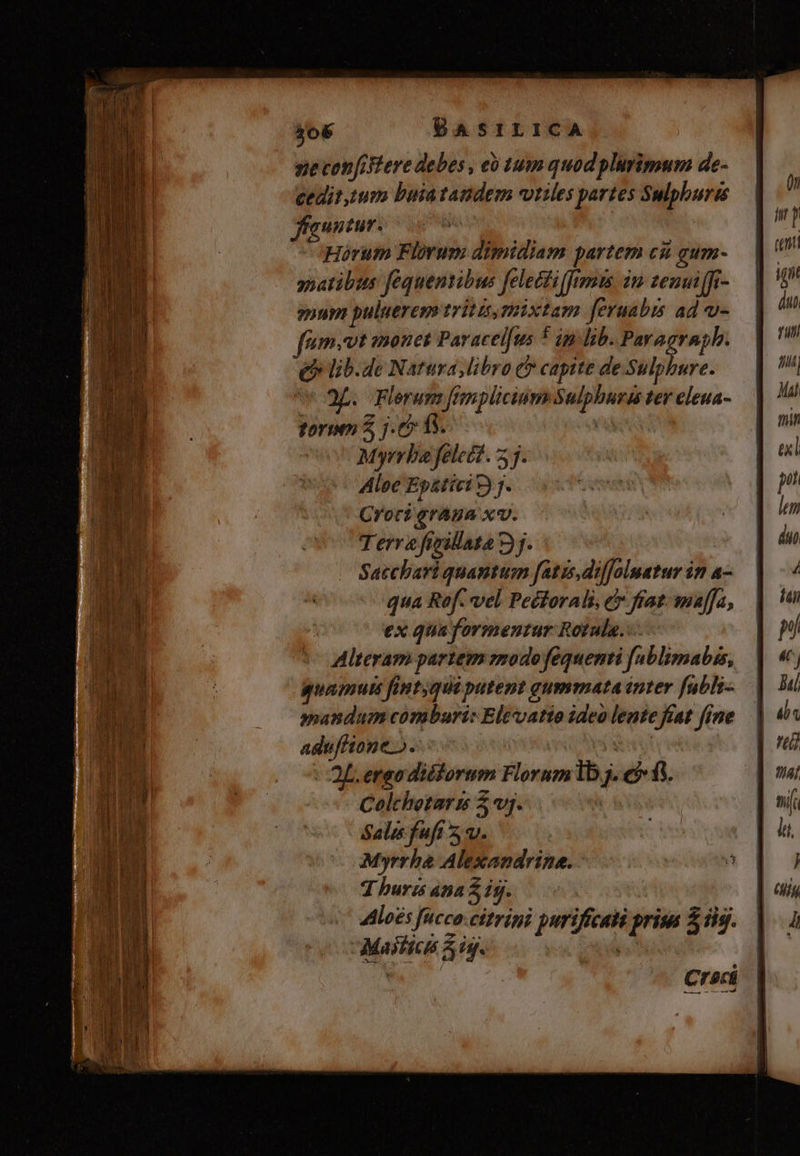 306 BASILICA
ne consistere debes, eò tum quod plurimum de-
cedit, tum quia tandem vtiles partes Sulphuris
sequuntur.
Horum Florum dimidiam partem cũ gum-
matibus sequentibus selectissimis in tenuissi-
mum puluerem tritis, mixtam seruabis ad v-
sum, vt monet Paracelsus in lib. Paragraph.
& lib. de Natura, libro & capite de Sulphure.
℞. Florum simplicium Sulphuris ter eleua-
torum ℥ j. & ß.
Myrrha select. ʒ j.
Aloe Epatici ℈ j.
Croci grana xv.
Terra sigillata ℈ j.
Sacchari quantum satis, dissoluatur in a-
qua Ros. vel Pectorali, & fiat massa,
ex qua formentur Rotula.
Alteram partem modo sequenti sublimabis,
quamuis sint, qui putent gummata inter subli-
mandum comburi: Eleuatio ideò lente fiat sine
adustione.
℞. ergo dictorum Florum ℔ j. & ß.
Colchotaris ℥ vj.
Salis fusi ʒ v.
Myrrha Alexandrina.
Thuris ana ℥ iij.
Aloës succo citrini purificati prius ℥ iiij.
Mastichis ℥ iij.
Croci